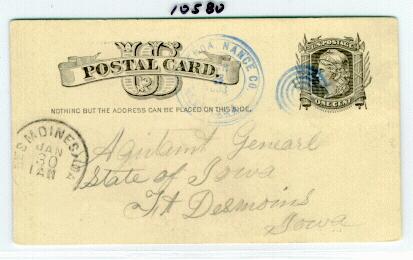 10580
US
POSTAL CARD.
NANCE CO.
U.S. POSTAGE
ONE CENT
NOTHING BUT THE ADDRESS CAN BE PLACED ON THIS SIDE.
DES MOINES, IOWA
JAN
30
1 AM
Aqutant Genearl
State of Iowa
Ft Desmoins
Iowa